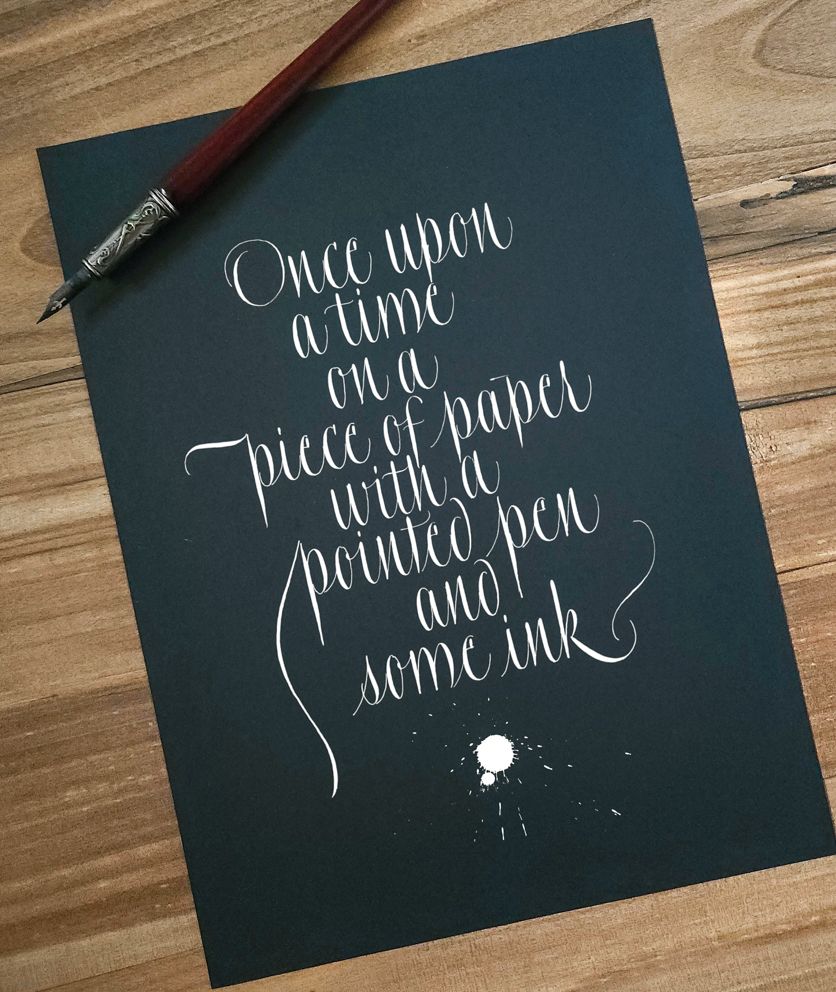 Once upon
a time
on a
piece of paper
with a
pointed pen
and
some ink